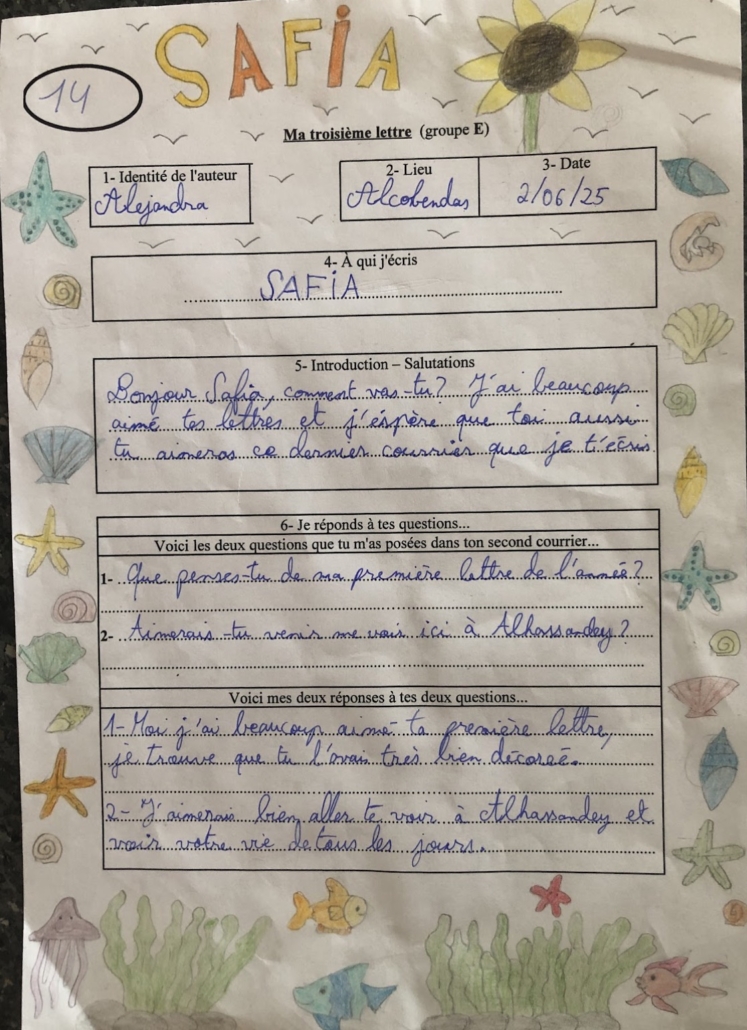 SAFiA
14
Ma troisième lettre (groupe E)
1- Identité de l'auteur
Alejandra
2- Lieu
Alcobendas
3- Date
2/06/25
4- À qui j'écris
SAFiA
5- Introduction – Salutations
Bonjour Safia, comment vas-tu? J'ai beaucoup
aimé tes lettres et j'éspère que toi aussi
tu aimeras ce dernier courrier que je t'écris
6- Je réponds à tes questions...
Voici les deux questions que tu m'as posées dans ton second courrier...
1- Que penses-tu de ma première lettre de l'année?
2- Aimerais-tu venir me voir ici à Alhassandey?
Voici mes deux réponses à tes deux questions...
1- Moi j'ai beaucoup aimé ta première lettre,
je trouve que tu l'avais très bien décoreé.
2- J'aimerais bien aller te voir à Alhassandey et
voir votre vie de tous les jours.